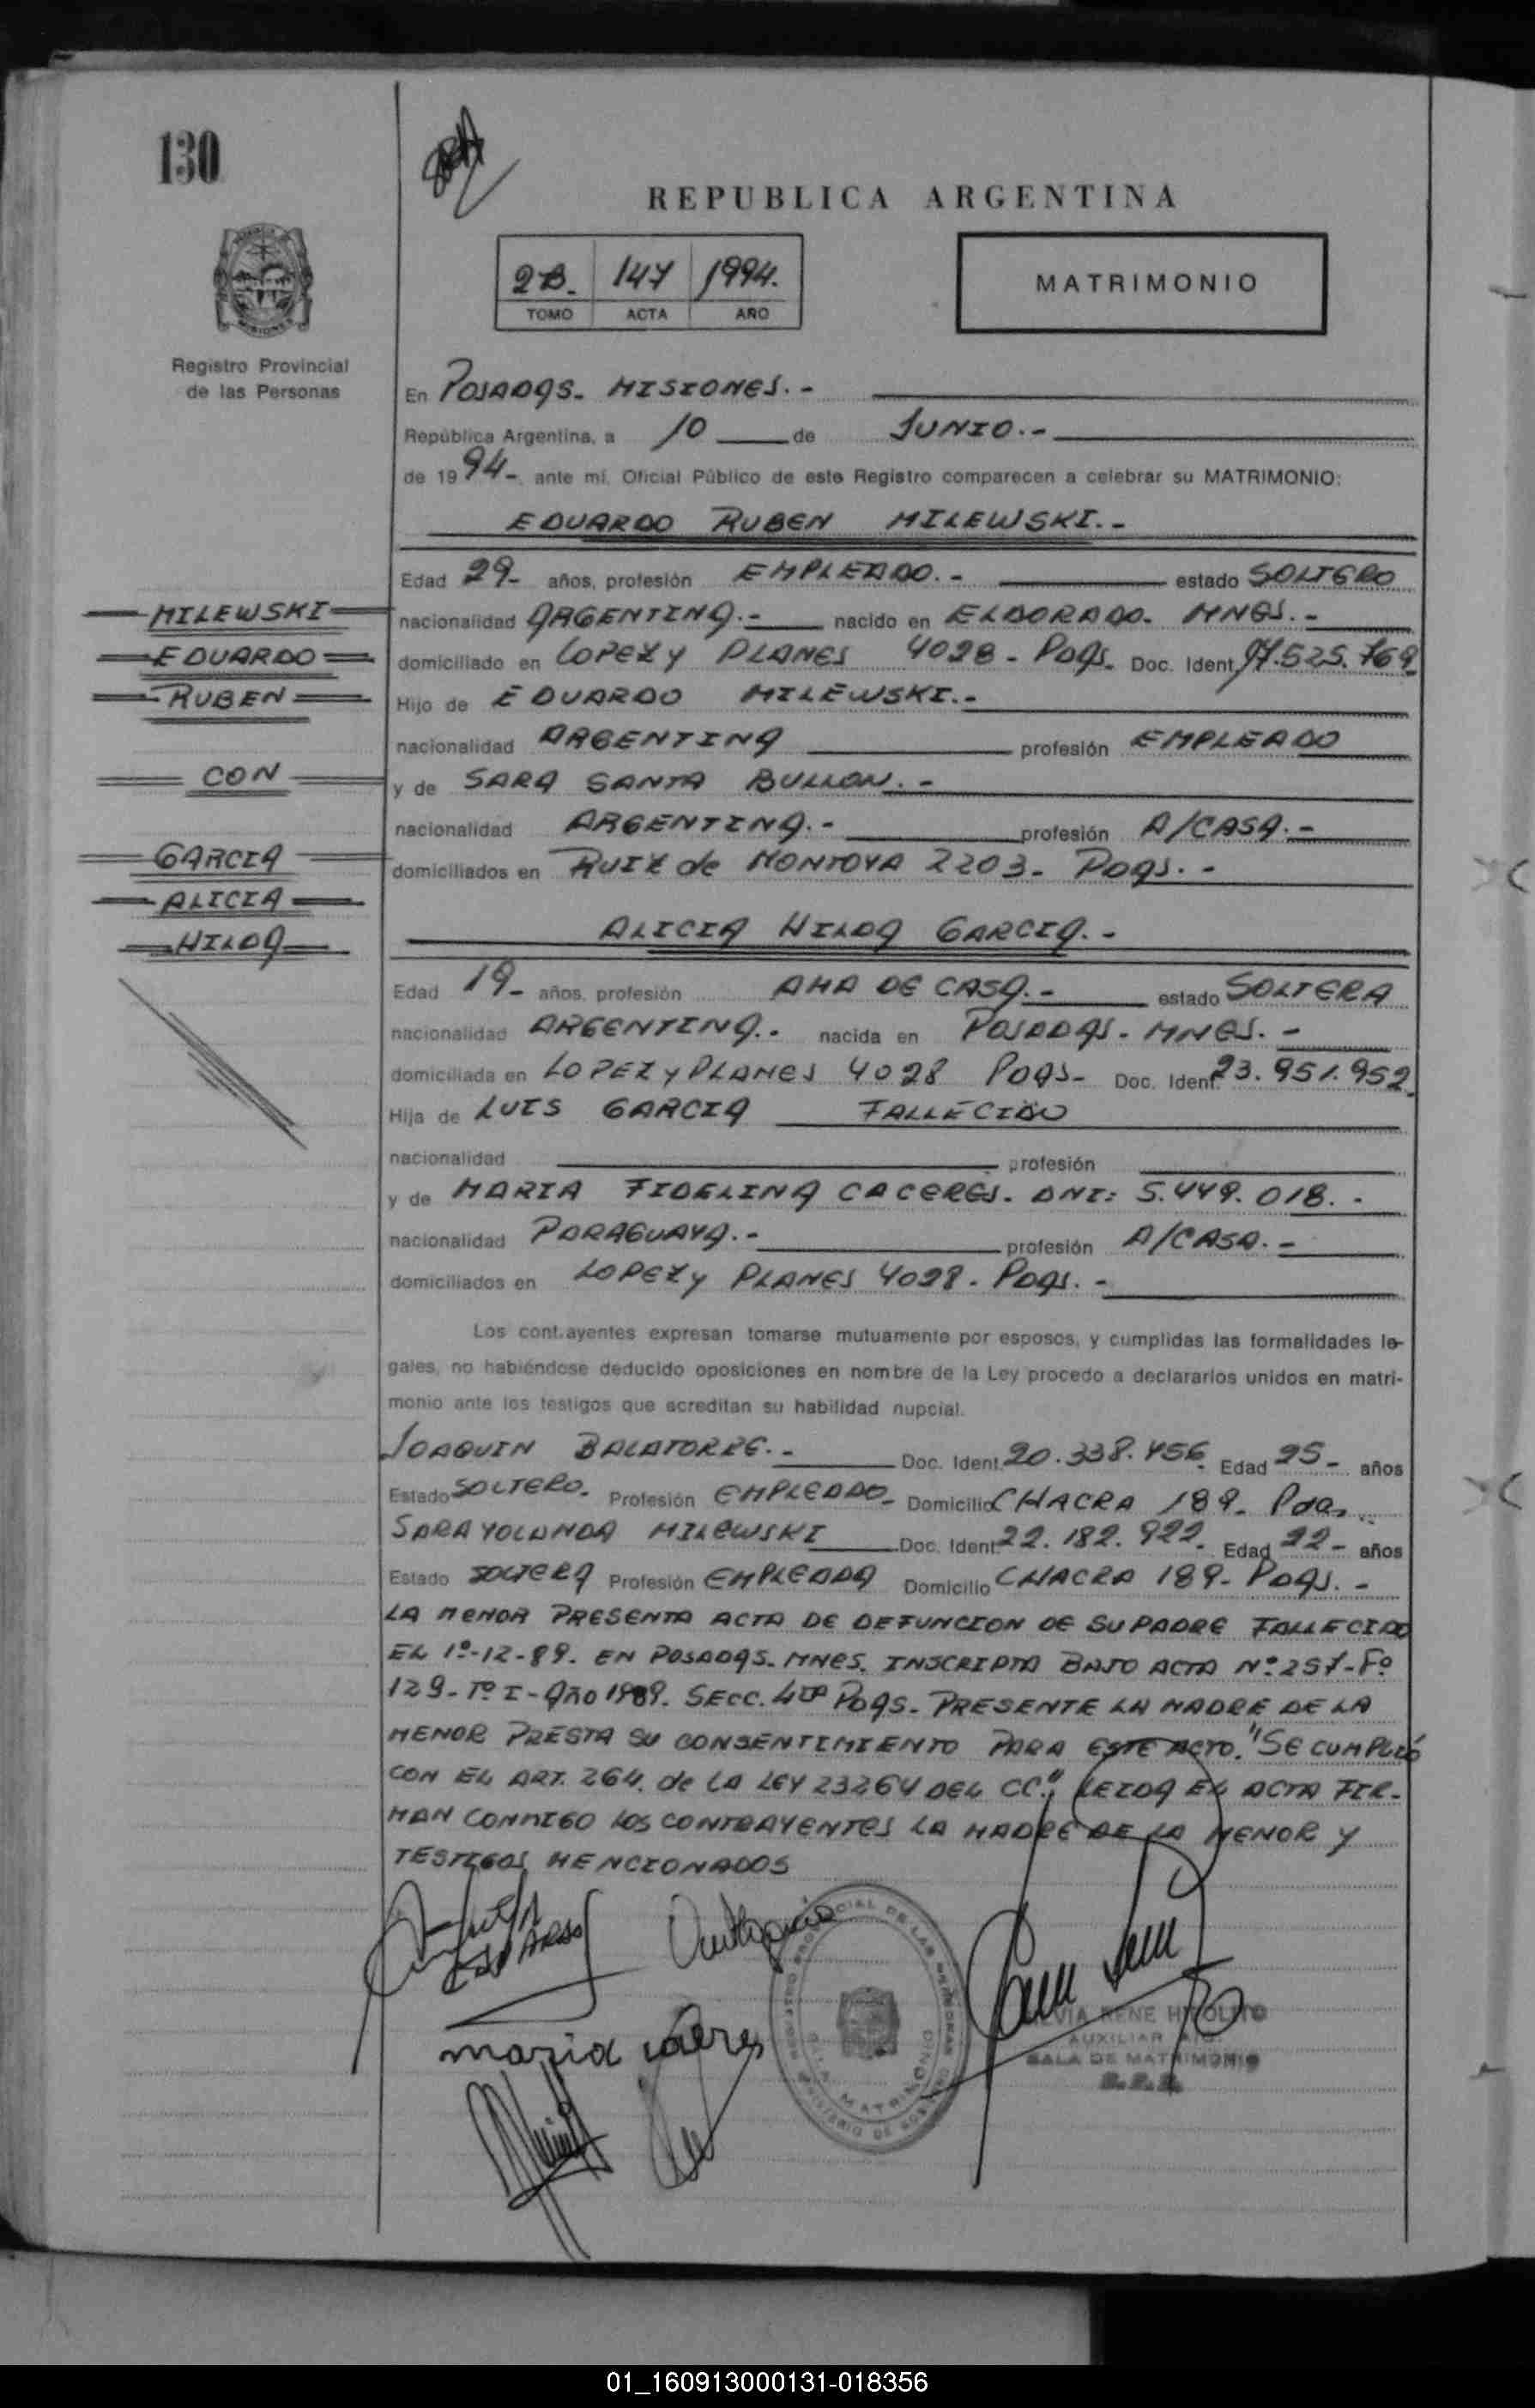 130
REPUBLICA ARGENTINA
2B. 147 1994.
TOMO ACTA AÑO
MATRIMONIO
Registro Provincial
de las Personas
En POSADAS- MISIONES.-
República Argentina, a 10 de JUNIO.-
de 1994- ante mí, Oficial Público de este Registro comparecen a celebrar su MATRIMONIO:
EDUARDO RUBEN MILEWSKI.-
Edad 29- años, profesión EMPLEADO.- estado SOLTERO
MILEWSKI
nacionalidad ARGENTINA.- nacido en ELDORADO- MNES.-
EDUARDO
domiciliado en LOPEZ y PLANES 4028- Pdas. Doc. Ident. 17.525.769
RUBEN
Hijo de EDUARDO MILEWSKI.-
nacionalidad ARGENTINA profesión EMPLEADO
CON
y de SARA SANTA BULLON.-
nacionalidad ARGENTINA.- profesión A/CASA.-
GARCIA
domiciliados en RUIZ de MONTOYA 2203- Pdas.-
ALICIA
HILDA
ALICIA HILDA GARCIA.-
Edad 19- años, profesión AMA DE CASA.- estado SOLTERA
nacionalidad ARGENTINA.- nacida en POSADAS- MNES.-
domiciliada en LOPEZ y PLANES 4028 Pdas- Doc. Ident. 23.951.952
Hija de LUIS GARCIA FALLECIDO
nacionalidad profesión
y de MARIA FIDELINA CACERES. DNI: 5.449.018.-
nacionalidad PARAGUAYA.- profesión A/CASA.-
domiciliados en LOPEZ y PLANES 4028- Pdas.-
Los contrayentes expresan tomarse mutuamente por esposos, y cumplidas las formalidades le-
gales, no habiéndose deducido oposiciones en nombre de la Ley procedo a declararlos unidos en matri-
monio ante los testigos que acreditan su habilidad nupcial.
JOAQUIN BALATORRE.- Doc. Ident. 20.338.456 Edad 25- años
Estado SOLTERO- Profesión EMPLEADO- Domicilio CHACRA 189- Pdas.
SARA YOLANDA MILEWSKI Doc. Ident. 22.182.922- Edad 22- años
Estado SOLTERA Profesión EMPLEADA Domicilio CHACRA 189- Pdas.-
LA MENOR PRESENTA ACTA DE DEFUNCION DE SU PADRE FALLECIDO
EL 1º-12-89. EN POSADAS- MNES. INSCRIPTA BAJO ACTA Nº 257-Fº
129- Tº I- Año 1989. SECC. 4ta Pdas- PRESENTE LA MADRE DE LA
MENOR PRESTA SU CONSENTIMIENTO PARA ESTE ACTO. "SE CUMPLIÓ
CON EL ART. 264. de LA LEY 23264 DEL CC". LEIDA EL ACTA FIR-
MAN CONMIGO LOS CONTRAYENTES LA MADRE DE LA MENOR Y
TESTIGOS MENCIONADOS
maria caceres
RENE HIPOLITO
AUXILIAR
SALA DE MATRIMONIO
01_160913000131-018356